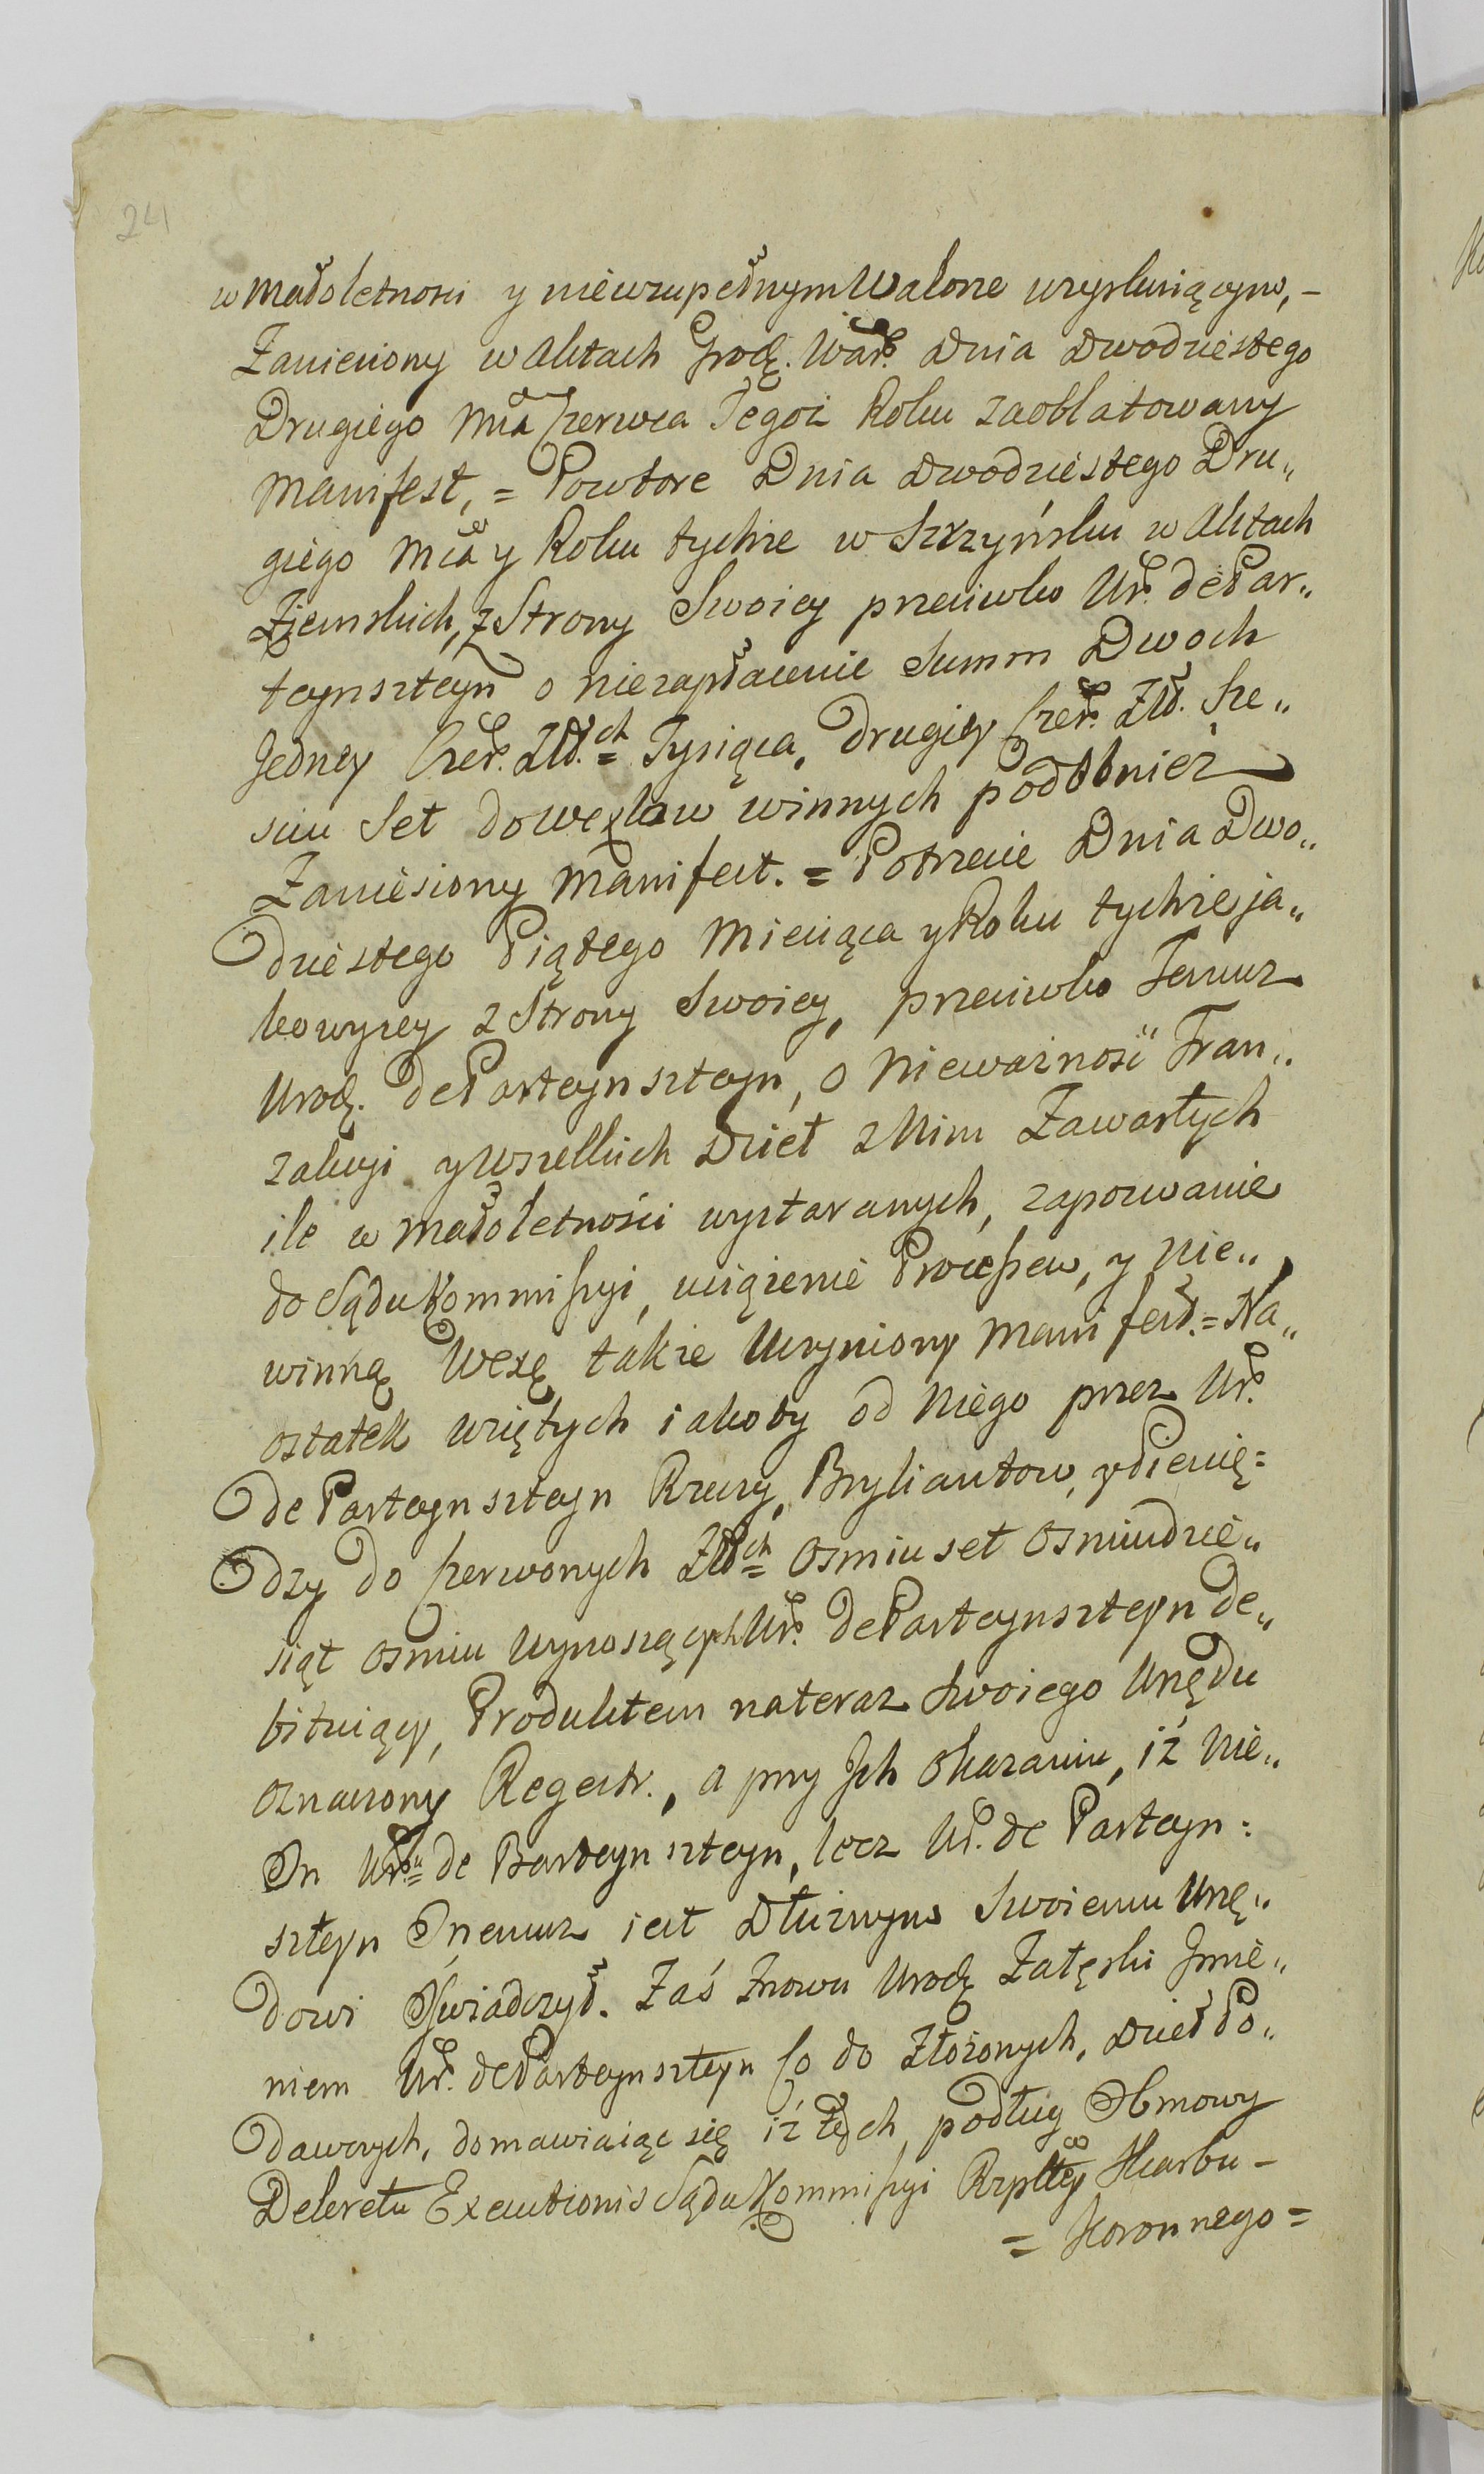 24
w Małoletnosci y niewzupełnym Walorze uzyskuiącym, -
Zaniesiony w Aktach Grodz. War. Dnia Dwodziestego
Drugiego Mca Czerwca Tegoż Roku zaoblatowany
Manifest, = Powtore Dnia Dwodziestego Dru„
giego Mca y Roku tychże w Szrzyńsku w Aktach
Ziemskich, z Strony Swoiey przeciwko Ur. de Par„
teynszteyn o niezapłacenie Summ Dwoch
Jedney Czer. Złł.ch = Tysiąca, Drugiey Czer. Złł. Sze„
sciu Set do wexlow winnych podobnież
Zaniesiony Manifest. = Potrzecie Dnia Dwo„
dziestego Piątego Miesiąca y Roku tychże ja„
kowyzey z Strony Swoiey, przeciwko Temuz
Urodz. de Parteynszteyn, o Nieważność Tran„
zakcyi y Wszelkich Dzieł z Nim Zawartych
ile w Małoletności wystaranych, zapozwanie
do Sądu Kommissyi, uciązenie Processem, y Nie„
winną Wexę także Uczyniony Manifest. = Na„
ostatek Wziętych iakoby od Niego przez Ur.
de Parteynszteyn Rzeczy, Bryliantow, y Pienię=
dzy do Czerwonych Złłch = Osmiuset Osmiudzie„
siąt Osmiu Wynoszących Ur. de Parteynszteyn De„
bituiący, Produktem nateraz Swoiego Urzędu
Oznaczony Regestr., a przy Jch Okazaniu, iż Nie„
On Ur.u = de Barteynszteyn, lecz Ur. de Parteyn=
szteyn Onemuz iest Dłużnym Swoiemu Urzę„
dowi Oświadczył. Zaś Znowu Urodz Załęski Jmie„
niem Ur. de Parteynszteyn Co do Złożonych, Dzieł Po„
dawczych, domawiaiąc się iż tych, podług Obmowy
Dekretu Executionis Sądu Kommissyi Rzpltey Skarbu -
= Koronnego =